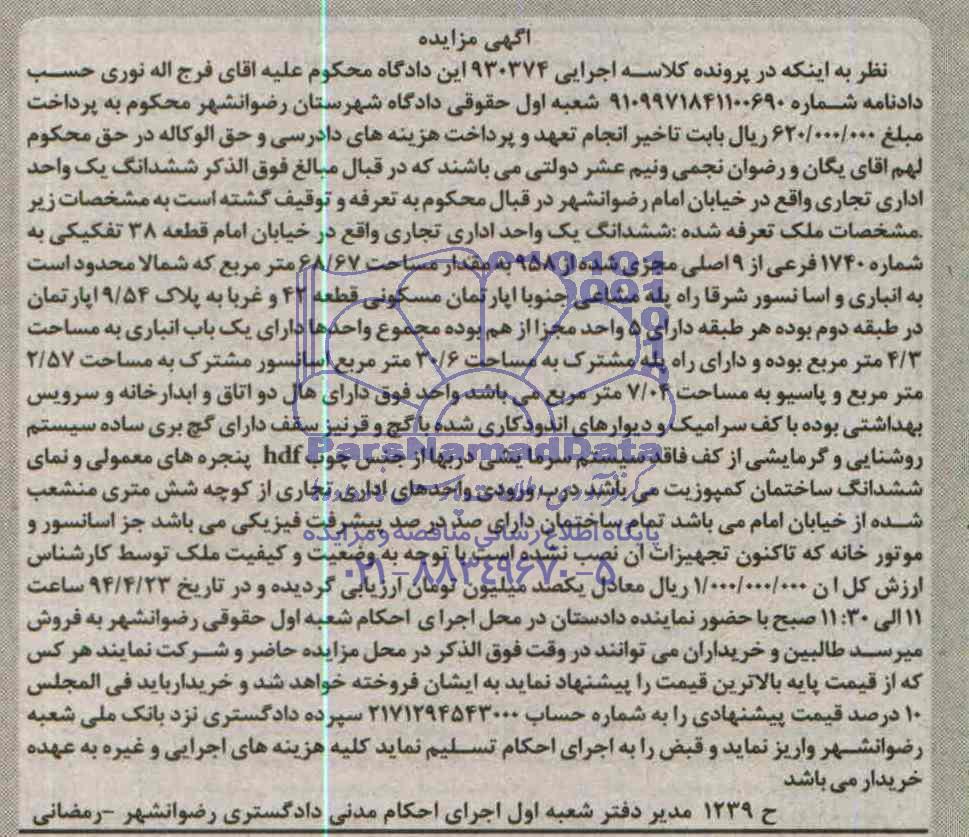 اگهی مزایده
نظر به اینکه در پرونده کلاسه اجرایی ۹۳۰۳۷۴ این دادگاه محکوم علیه اقای فرج اله نوری حسب
دادنامه شماره ۹۱۰۹۹۷۱۸۴۱۱۰۰۶۹۰ شعبه اول حقوقی دادگاه شهرستان رضوانشهر محکوم به پرداخت
مبلغ ۶۲۰/۰۰۰/۰۰۰ ریال بابت تاخیر انجام تعهد و پرداخت هزینه های دادرسی و حق الوکاله در حق محکوم
لهم اقای یگان و رضوان نجمی ونیم عشر دولتی می باشند که در قبال مبالغ فوق الذکر ششدانگ یک واحد
اداری تجاری واقع در خیابان امام رضوانشهر در قبال محکوم به تعرفه و توقیف گشته است به مشخصات زیر
.مشخصات ملک تعرفه شده :ششدانگ یک واحد اداری تجاری واقع در خیابان امام قطعه ۳۸ تفکیکی به
شماره ۱۷۴۰ فرعی از ۹ اصلی مجزی شده از ۹۵۸ به مقدار مساحت ۶۸/۶۷ متر مربع که شمالا محدود است
به انباری و اسا نسور شرقا راه پله مشاعی جنوبا اپارتمان مسکونی قطعه ۴۲ و غربا به پلاک ۹/۵۴ اپارتمان
در طبقه دوم بوده هر طبقه دارای ۵ واحد مجزا از هم بوده مجموع واحدها دارای یک باب انباری به مساحت
۴/۳ متر مربع بوده و دارای راه پله مشترک به مساحت ۳۰/۶ متر مربع اسانسور مشترک به مساحت ۲/۵۷
متر مربع و پاسیو به مساحت ۷/۰۴ متر مربع می باشد واحد فوق دارای هال دو اتاق و ابدارخانه و سرویس
بهداشتی بوده با کف سرامیک و دیوارهای اندودکاری شده با گچ و قرنیز سقف دارای گچ بری ساده سیستم
روشنایی و گرمایشی از کف فاقد سیستم سرمایشی دربها از جنس چوب hdf پنجره های معمولی و نمای
ششدانگ ساختمان کمپوزیت می باشد درب ورودی واحدهای اداری تجاری از کوچه شش متری منشعب
شده از خیابان امام می باشد تمام ساختمان دارای صد در صد پیشرفت فیزیکی می باشد جز اسانسور و
موتور خانه که تاکنون تجهیزات ان نصب نشده است با توجه به وضعیت و کیفیت ملک توسط کارشناس
ارزش کل ا ن ۱/۰۰۰/۰۰۰/۰۰۰ ریال معادل یکصد میلیون تومان ارزیابی گردیده و در تاریخ ۹۴/۴/۲۳ ساعت
۱۱ الی ۱۱:۳۰ صبح با حضور نماینده دادستان در محل اجرا ی احکام شعبه اول حقوقی رضوانشهر به فروش
میرسد طالبین و خریداران می توانند در وقت فوق الذکر در محل مزایده حاضر و شرکت نمایند هر کس
که از قیمت پایه بالاترین قیمت را پیشنهاد نماید به ایشان فروخته خواهد شد و خریدارباید فی المجلس
۱۰ درصد قیمت پیشنهادی را به شماره حساب ۲۱۷۱۲۹۴۵۴۳۰۰۰ سپرده دادگستری نزد بانک ملی شعبه
رضوانشهر واریز نماید و قبض را به اجرای احکام تسلیم نماید کلیه هزینه های اجرایی و غیره به عهده
خریدار می باشد
ح ۱۲۳۹ مدیر دفتر شعبه اول اجرای احکام مدنی دادگستری رضوانشهر -رمضانی
ParsNamadData
پایگاه اطلاع رسانی مناقصه و مزایده
۰۲۱-۸۸۳۴۹۶۷۰-۵